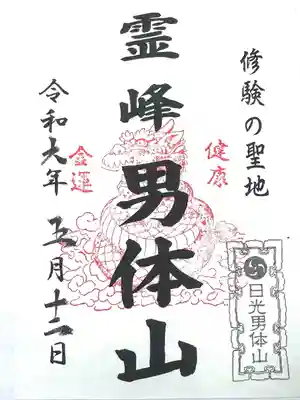 修験の聖地
健康
霊峰男体山
金運
令和六年 五月十二日
日光男体山